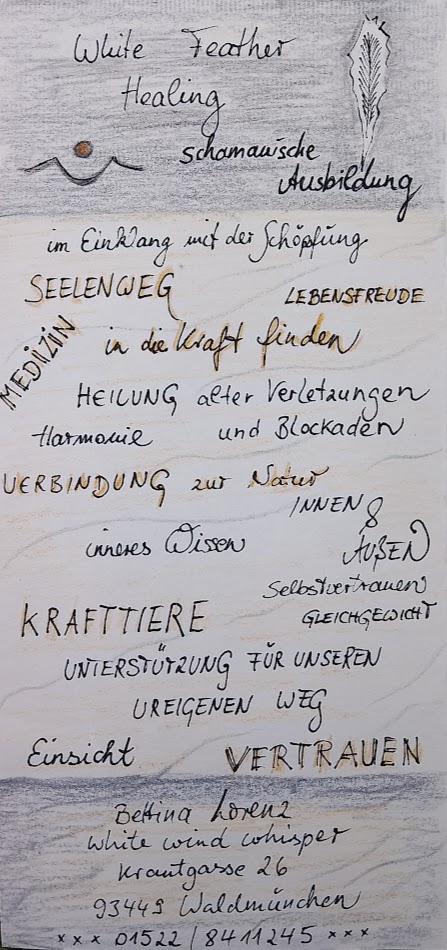 White Feather
Healing
schamanische
Ausbildung
im Einklang mit der Schöpfung
SEELENWEG
LEBENSFREUDE
MEDIZIN
in die Kraft finden
HEILUNG alter Verletzungen
Harmonie und Blockaden
VERBINDUNG zur Natur
INNEN &
AUßEN
inneres Wissen
Selbstvertrauen
KRAFTTIERE
GLEICHGEWICHT
UNTERSTÜTZUNG FÜR UNSEREN
UREIGENEN WEG
Einsicht VERTRAUEN
Bettina Lorenz
White wind whisper
Krautgasse 26
93449 Waldmünchen
x x x 01522 / 8411245 x x x